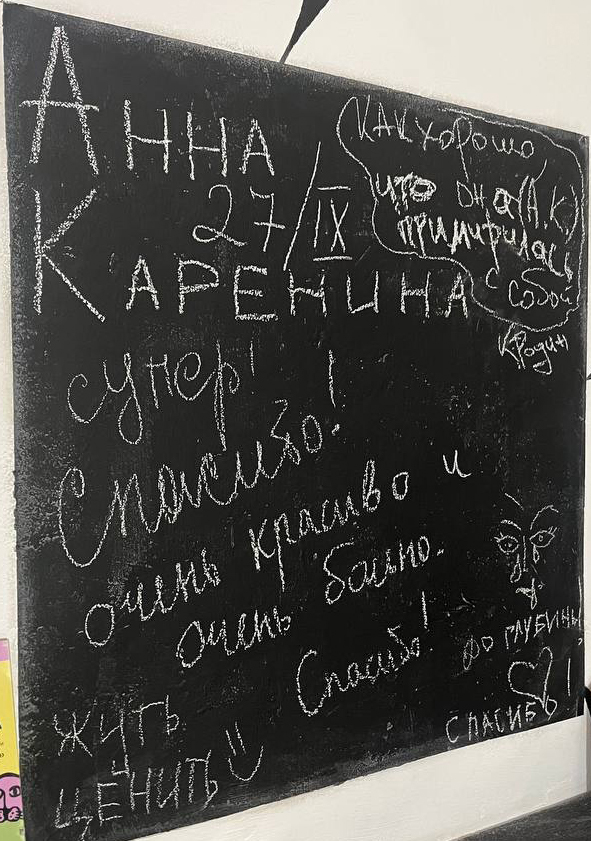 Анна
27/IX
Каренина
Как хорошо,
что она (А.К.)
примирилась
с собой
Супер!
Спасибо!
очень красиво и
очень больно.
Спасибо!
до глубины
Спасибо!
Жуть
Ценить